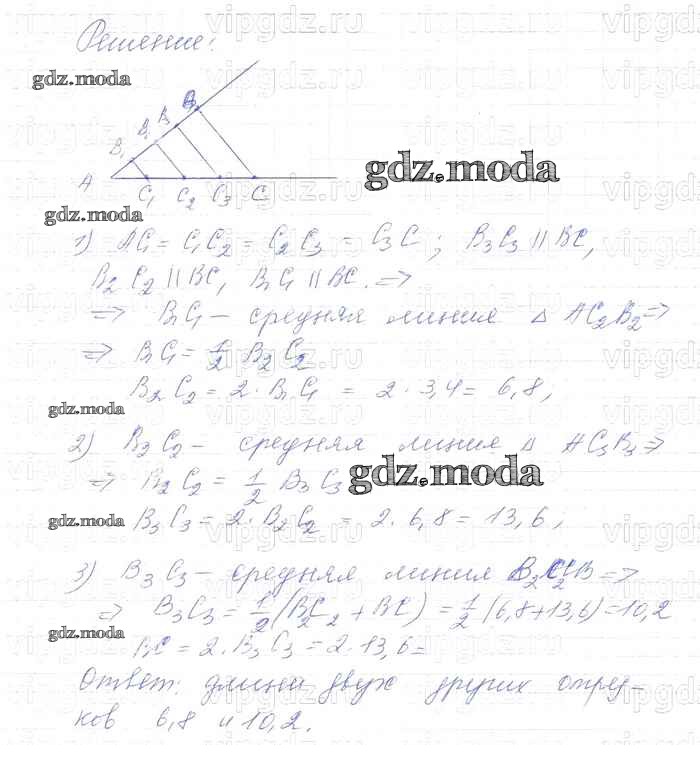 Решение:
gdz.moda
B₁ B₂ B₃ B
A C₁ C₂ C₃ C
gdz.moda
gdz.moda
1) AC₁ = C₁C₂ = C₂C₃ = C₃C; B₃C₃ || BC,
B₂C₂ || BC, B₁C₁ || BC. =>
=> B₁C₁ – средняя линия △ AC₂B₂ =>
=> B₁C₁ = 1/2 B₂C₂
B₂C₂ = 2 · B₁C₁ = 2 · 3,4 = 6,8,
gdz.moda
2) B₂C₂ – средняя линия △ AC₃B₃ =>
=> B₂C₂ = 1/2 B₃C₃
gdz.moda
gdz.moda B₃C₃ = 2 · B₂C₂ = 2 · 6,8 = 13,6;
3) B₃C₃ – средняя линия B₂C₂CB =>
=> B₃C₃ = 1/2 (B₂C₂ + BC) = 1/2 (6,8 + 13,6) = 10,2
gdz.moda
BC = 2 · B₃C₃ = 2 · 13,6 =
Ответ: длины двух других отрез-
ков 6,8 и 10,2.